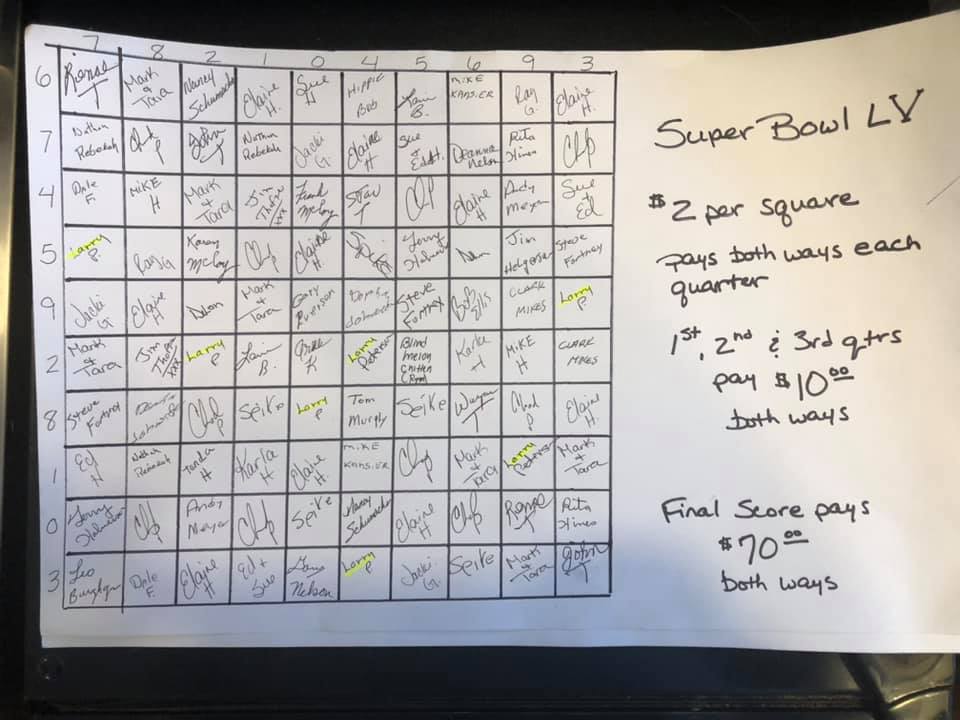 7 8 2 1 0 4 5 6 9 3
6 Renae T Mark & Tara Nancy Schumacher Elaine H. Sue H Hippie Bob B. MIKE KANSIER Ray G. Elaine H.
7 Nathan Rebekah P John T Nathan Rebekah Jacki G. Elaine H Sue & Ed H. Deanna Nelson Rita Himes Chp
4 Dale F. MIKE H Mark + Tara Jim Thorpe xxx Frank McCoy Stew T Elaine H Andy Meyer Sue + Ed
5 Larry P. Ray G Karen McCoy Elaine H. Jerry Jim Helgerson Steve Fortney
9 Jacki G Elaine H Mark & Tara Gary Steve Fortney Bob Ells CLARK MIKES Larry P
2 Mark & Tara Jim Thorpe xxx Larry P B. K Larry Peterson Blind melon chitlin Karla H MIKE H CLARK MIKES
8 Steve Chad P Seike Larry P Tom Murphy Seike Wayne T Chad P Elaine H
1 Ed H Nathan Rebekah H Karla H Elaine H. MIKE KANSIER Chp Mark & Tara Larry Peterson Mark & Tara
0 Jerry Chp Andy Meyer Chp Seike Nancy Schumacher Elaine H Chp Renae T Rita Himes
3 Leo Dale F. Elaine H Ed + Sue Nelson Larry P Jacki G. Seike Mark & Tara John T
Super Bowl LV
$2 per square
pays both ways each
quarter
1st, 2nd & 3rd qtrs
pay $10.00
both ways
Final Score pays
$70.00
both ways